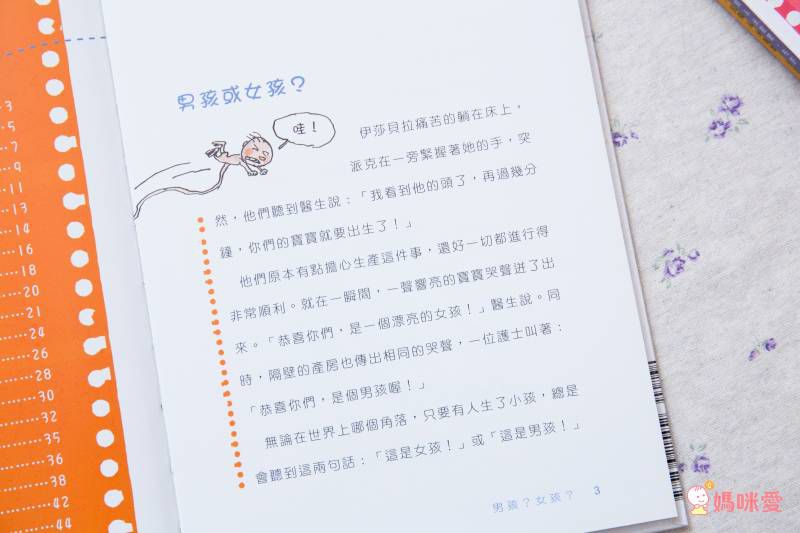 3
5
7
9
11
13
14
16
18
21
22
24
26
28
30
32
35
36
38
42
44
男孩或女孩？
哇！
伊莎貝拉痛苦的躺在床上，
派克在一旁緊握著她的手，突
然，他們聽到醫生說：「我看到他的頭了，再過幾分
鐘，你們的寶寶就要出生了！」
他們原本有點擔心生產這件事，還好一切都進行得
非常順利。就在一瞬間，一聲響亮的寶寶哭聲迸了出
來。「恭喜你們，是一個漂亮的女孩！」醫生說。同
時，隔壁的產房也傳出相同的哭聲，一位護士叫著：
「恭喜你們，是個男孩喔！」
無論在世界上哪個角落，只要有人生了小孩，總是
會聽到這兩句話：「這是女孩！」或「這是男孩！」
男孩？女孩？ 3
媽咪愛